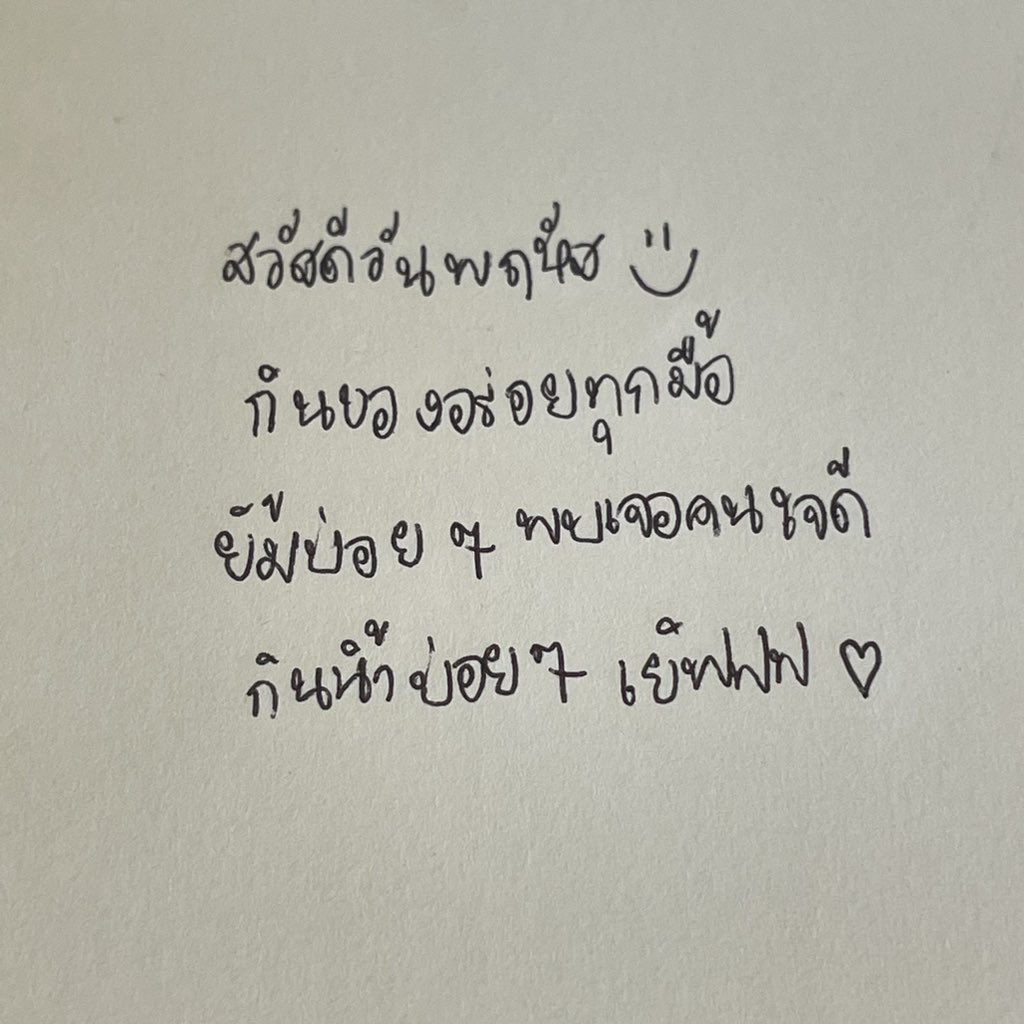 สวัสดีวันพฤหัส
กินของอร่อยทุกมื้อ
ยิ้มบ่อย ๆ พบเจอคนใจดี
กินน้ำบ่อย ๆ เย้ฟฟฟ ♡